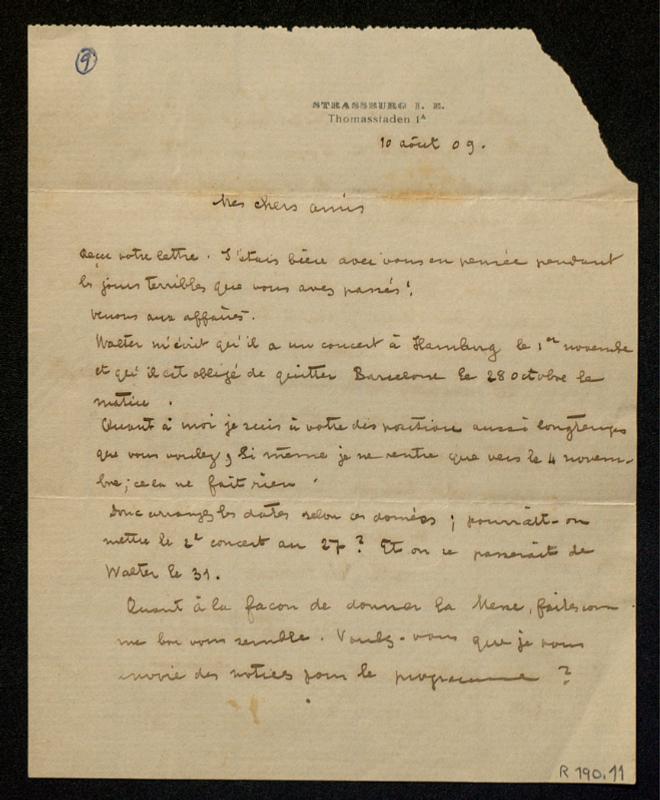 9
STRASSBURG I. E.
Thomasstaden 1A
10 août 09.
Mes chers amis
Reçu votre lettre. J'étais bien avec vous en pensée pendant
les jours terribles que vous avez passés!
Venons aux affaires.
Walter m'écrit qu'il a un concert à Hamburg le 1er novembre
et qu'il est obligé de quitter Barcelone le 28 octobre le
matin.
Quant à moi je suis à votre disposition aussi longtemps
que vous voulez, Si même je ne rentre que vers le 4 novem-
bre; cela ne fait rien.
Donc arrangez les dates selon ces données; pourrait-on
mettre le 2d concert au 27? Et on se passerait de
Walter le 31.
Quant à la façon de donner la Messe, faites com-
me bon vous semble. Voulez-vous que je vous
envoie des notices pour le programme?
R 190.11